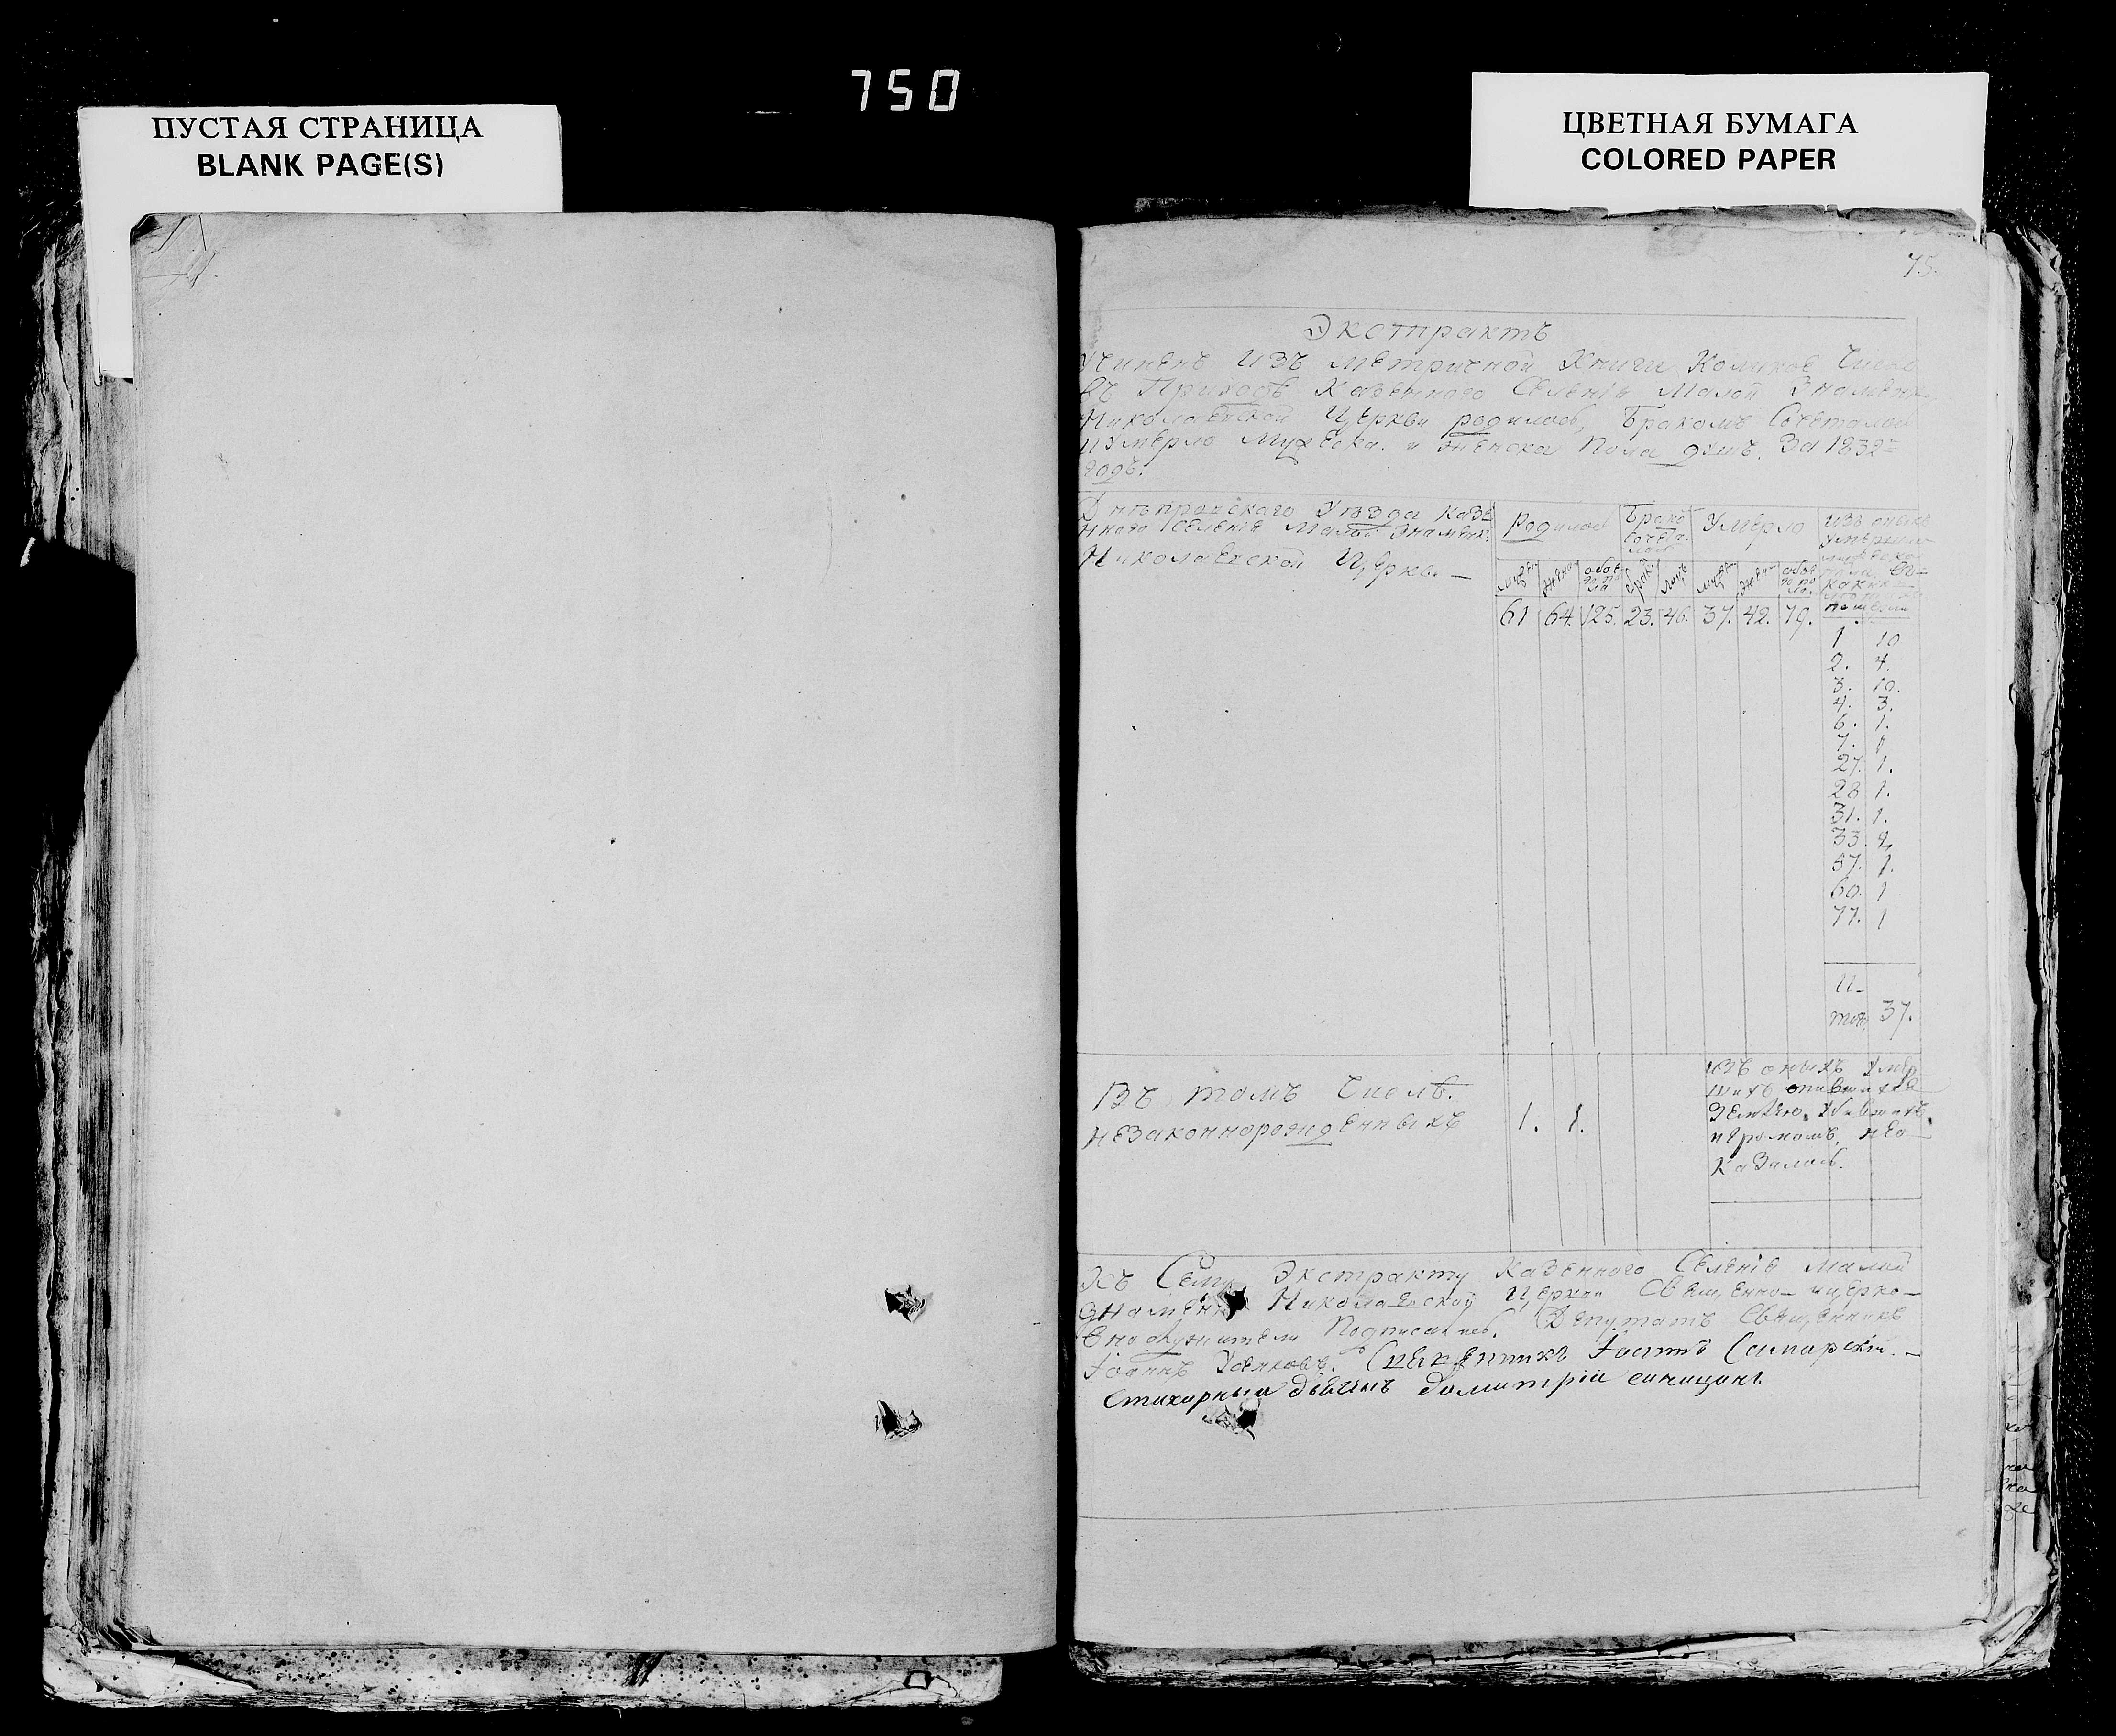 750
ПУСТАЯ СТРАНИЦА
BLANK PAGE(S)
ЦВЕТНАЯ БУМАГА
COLORED PAPER
75.
Экстрактъ
Учиненъ изъ метричной Книги Коликое Число
Въ Приходѣ Казенного Селенія Малой Знаменк
Николаевской Церкви родилось, Бракомъ Сочеталось
и умерло мужеска. и женска Пола душъ. За 1832=
годъ.
Днепровского Уезда казе
нного Селенія Малой Знаменк.
Николаевской Церкв. —
Родилось
Брако
сочета
лось
Умерло
изъ оныхъ
умерши
муж
жен
обое
го по
ла
брак
лиц
муж
жен
обое
го по
ла.
61 64. 125. 23. 46. 37. 42. 79.
1 10
2. 4.
3. 10.
4. 3.
6. 1.
7. 1
27. 1.
28 1.
31. 1.
33. 2,
57. 1.
60. 1
77. 1
И-
того, 37.
Въ томъ Числѣ.
незаконнорожденныхъ
1. 1.
изъ оныхъ умер
шихъ опившихся
Зѣлѣю.
и громомъ, нео
казалось.
Къ Сему Экстракту Казенного Селенія Малой
Знаменк Николаевской Церкви Священно-церко-
внослужители Подписались. Депутатъ Священникъ
Іоаннъ Священникъ Іоаннъ Самарскій. —
Стихарный дьячекъ Димитрій синицинъ.